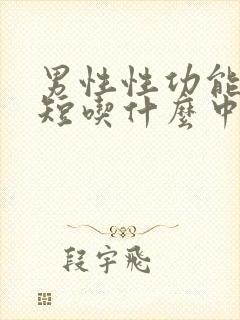 男性性功能
短喫什麼中
段宇飛